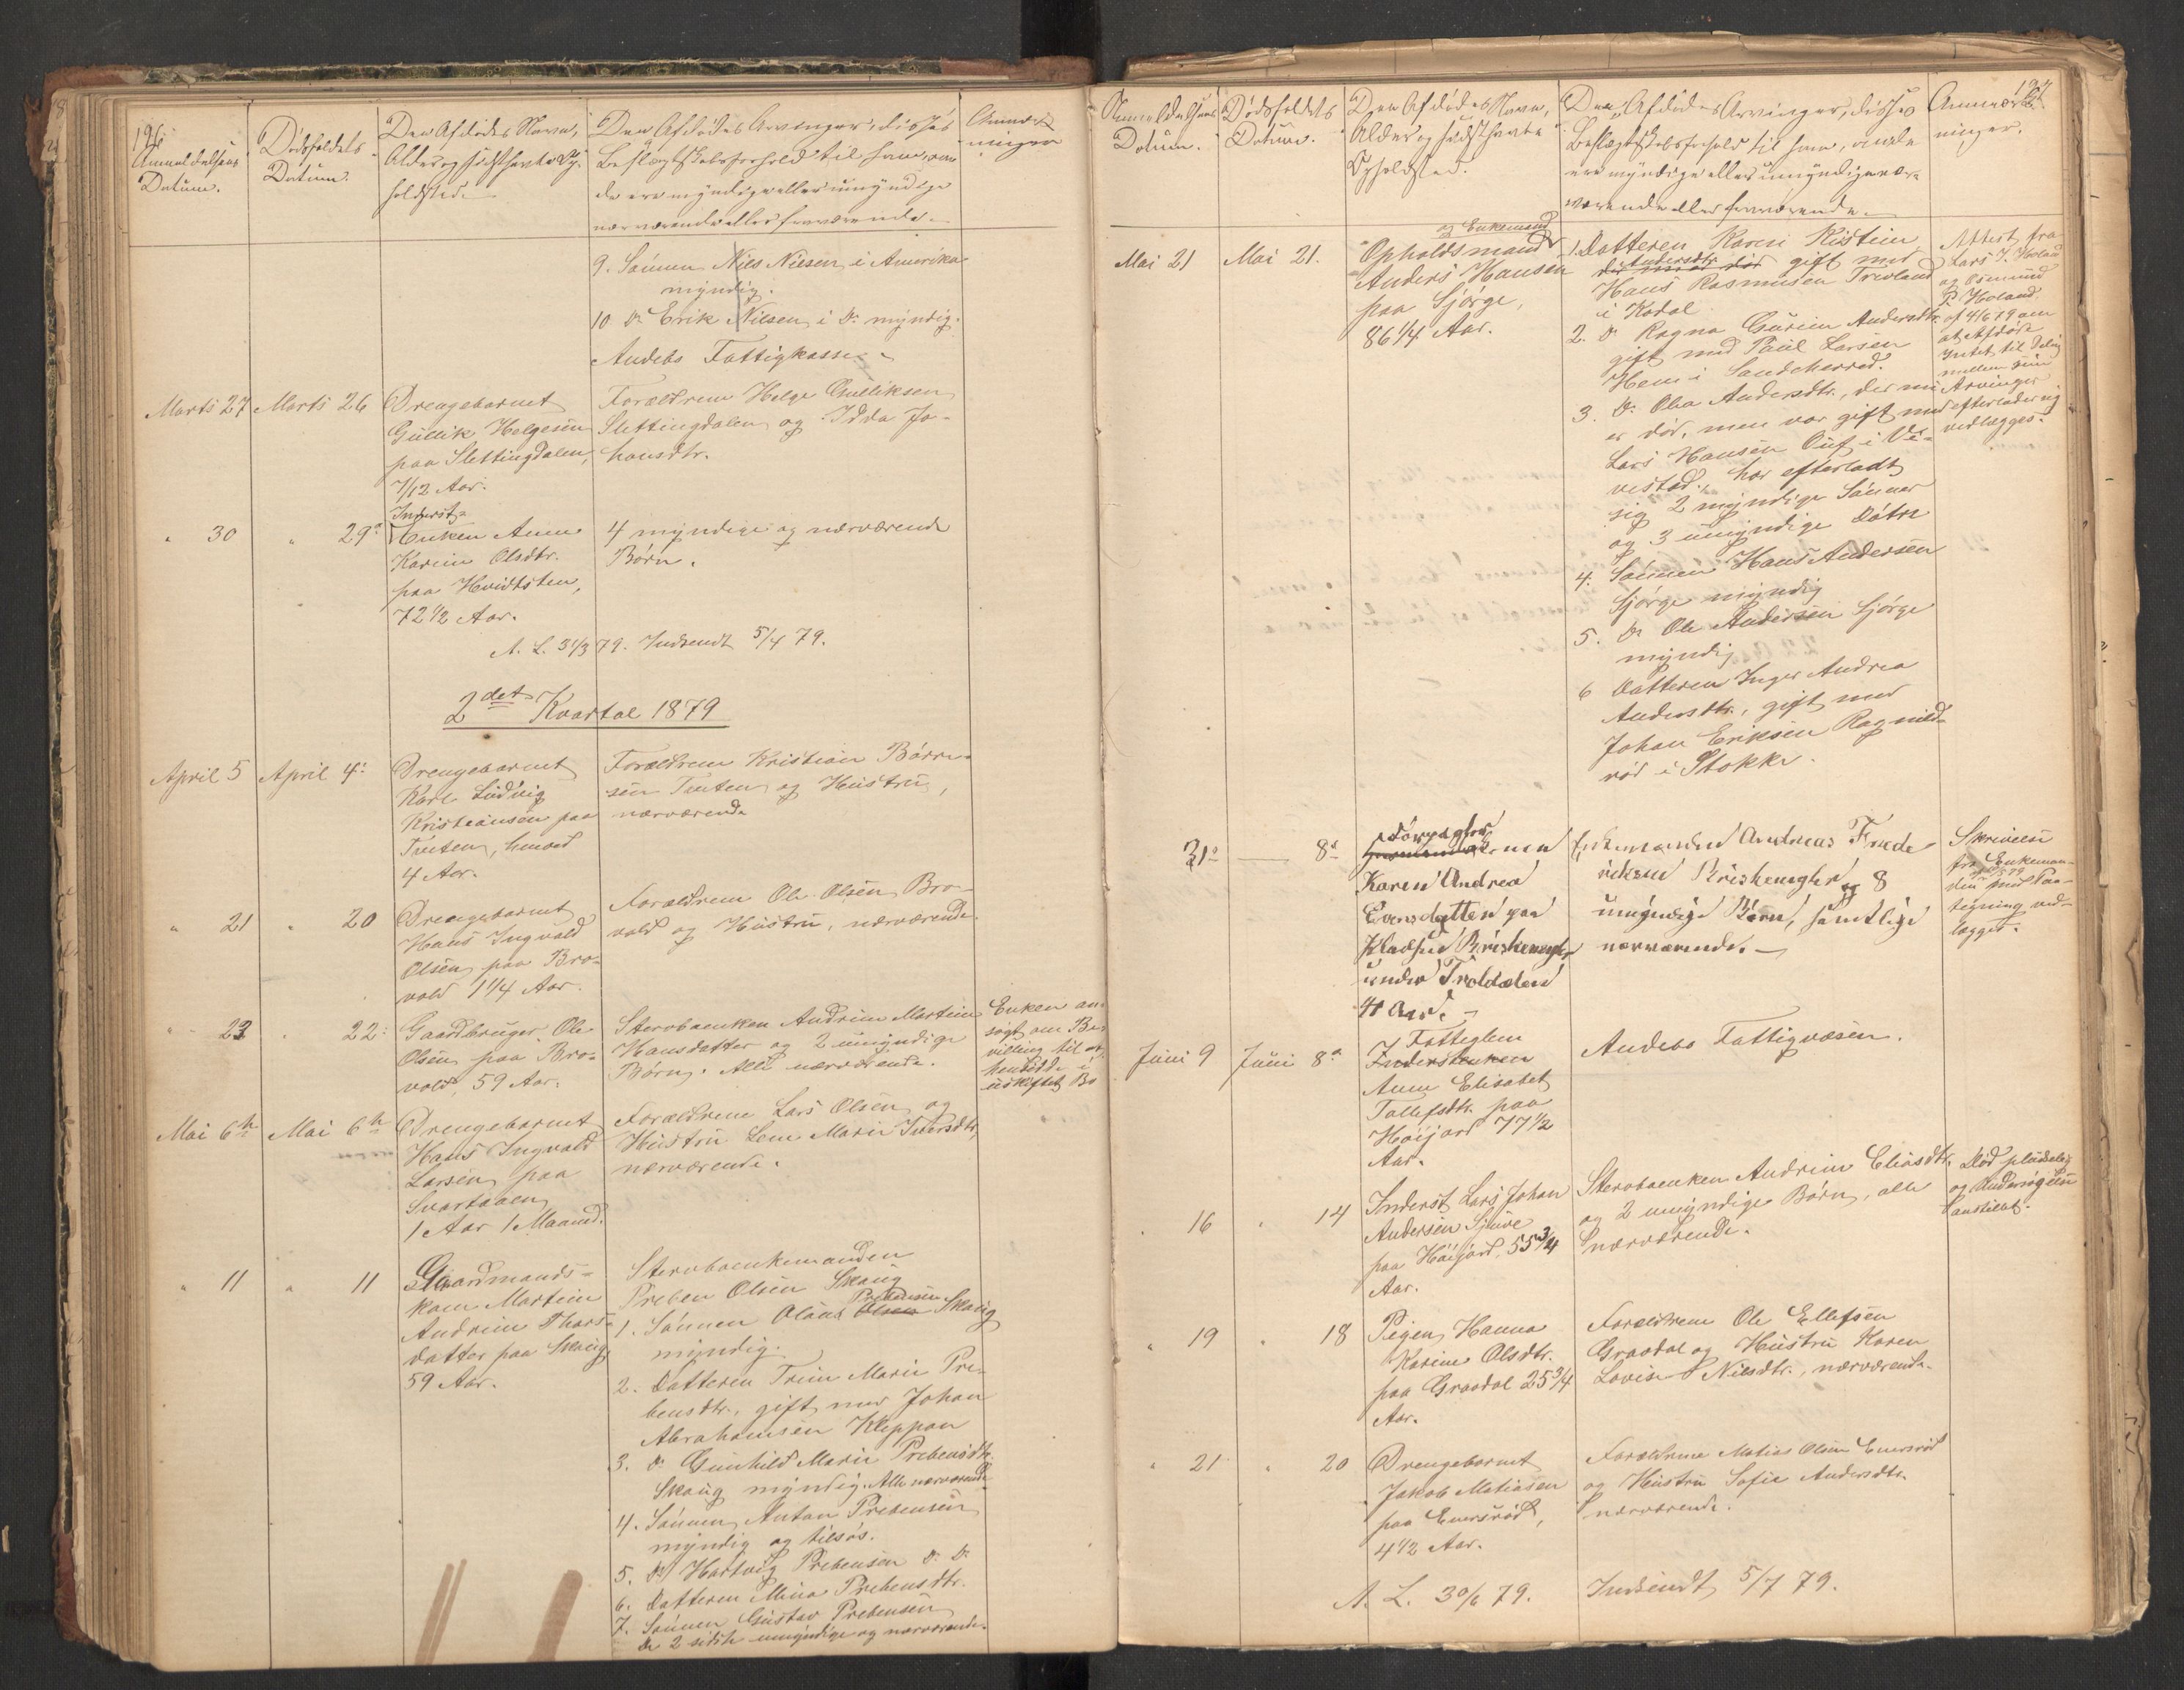 196.
Anmeldelsens
Datum.
Dødsfaldets
Datum.
Den Afdødes Navn,
Alder og sidst havte Op-
holdsted.
Den Afdødes Arvinger, disses
Beslægtskabsforhold til ham, om
de ere myndige eller umyndige
nærværende eller fraværende.
Anmærk-
ninger
9. Sønnen Niels Nilsen i Amerika
myndig.
10 Do Erik Nilsen i Do myndig.
Andebo Fattigkasse
Marts 27 Marts 26 Drengebarnet
Gullik Helgesen
paa Slettingdalen,
7/12 Aar.
Forældrene Helge Gulliksen
Slettingdalen og Idda Jo-
hansdtr.
" 30 " 29de
Inderst-
Enken Anne
Karine Olsdtr.
paa Hvidtsten,
72 1/2 Aar.
4 myndige og nærværende
Børn.
A. L. 31/3 79. Indsendt 5/4 79.
2det Kvartal 1879
April 5 April 4de Drengebarnet
Karl Ludvig
Kristiansen paa
Tuften,
4 Aar.
Forældrene Kristian Børre-
sen Tuften og Hustru,
nærværende
" 21 " 20 Drengebarnet
Hans Ingvald
Olsen paa Bro-
vold 1 1/4 Aar.
Forældrene Ole Olsen Bro-
vold og Hustru, nærværende.
" 23 " 22de Gaardbruger Ole
Olsen paa Bro-
vold, 59 Aar.
Stervboenken Andrine Martine
Hansdatter og 2 umyndige
Børn. Alle nærværende.
Enken an-
søgt om Be-
villing til at
hensidde i
uskiftet Bo
Mai 6te Mai 6te Drengebarnet
Hans Ingvald
Larsen paa
Svartaaen
1 Aar 1 Maaned.
Forældrene Lars Olsen og
Hustru Lene Marie Iversdtr,
nærværende.
" 11 " 11 Gaardmands-
kone Martine
Andrine Thors-
datter paa Skaug
59 Aar.
Stervboenkemanden
Preben Olsen Skaug
1. Sønnen Olaus Olsen Prebensen Skaug
myndig.
2. Datteren Trine Marie Pre-
bensdtr., gift med Johan
Abrahamsen Kleppan
3. Do Gunhild Marie Prebensdtr.
Skaug myndig. Alle nærværende
4. Sønnen Anton Prebensen
myndig og tilsøs.
5. Do Hartvig Prebensen Do Do
6. Datteren Mina Prebensdtr.
7. Sønnen Gustav Prebensen
De 2 sidste umyndige og nærværende.
197.
Anmeldelsens
Datum.
Dødsfaldets
Datum.
Den Afdødes Navn,
Alder og sidst havte
Opholdsted.
Den Afdødes Arvinger, disses
Beslægtskabsforhold til ham, om de
ere myndige eller umyndige nær-
værende eller fraværende.
Anmærk-
ninger.
Mai 21 Mai 21.
og Enkemand
Opholdsmand
Anders Hansen
paa Sjørge,
86 1/4 Aar.
1. Datteren Karen Kirstine
Andersdtr. gift med
Hans Rasmusen Trevland
i Kodal.
2. Do Ragna Gurine Andersdtr.
gift med Paul Larsen
Hem i Sandeherred.
3. Do Olea Andersdtr., der nu
er død, men var gift med
Lars Hansen Ouf i Vi-
vestad, har efterladt
sig 2 myndige Sønner
og 3 umyndige Døtre
4. Sønnen Hans Andersen
Sjørge myndig
5. Do Ole Andersen Sjørge
myndig
6 Datteren Inger Andrea
Andersdtr., gift med
Johan Eriksen Ragnild-
rød i Stokke.
Attest fra
Lars J. Hvland
og Osmund
P. Hvland
af 4/6 79 om
at Afdøde
Intet til Deling
mellem sine
Arvinger
efterlader sig
vedlægges.
31te — 8de
Karen Andrea
Eversdatter paa
Pladsen Briskemyhr
under Troldalen
41 Aar.
Enkemanden Andreas Frede-
riksen Briskemyhr og 8
umyndige Børn, samtlige
nærværende.
Skrivelse
fra Enkeman-
den med Paa-
tegning ved-
lagges.
Juni 9 Juni 8de
Fattiglem
Inderstenken
Anne Elisabet
Tollefsdtr. paa
Høijord 77 1/2
Aar.
Andebo Fattigvæsen.
" 16 " 14 Inderst Lars Johan
Andersen Sjuve
paa Høijord, 55 3/4
Aar.
Stervboenken Andrine Eliasdtr.
og 2 umyndige Børn, alle
nærværende.
Død pludselig
og Undersøgelse
anstillet.
" 19 " 18 Pigen Hanna
Karine Olsdtr.
paa Graadal 25 3/4
Aar.
Forældrene Ole Ellefsen
Graadal og Hustru Karen
Lovise Nilsdtr., nærværende.
" 21 " 20 Drengebarnet
Jakob Matiasen
paa Eversrød,
4 1/2 Aar.
Forældrene Matias Olsen Eversrød
og Hustru Sofie Andersdtr.
nærværende.
A. L. 30/6 79. Indsendt 5/7 79.